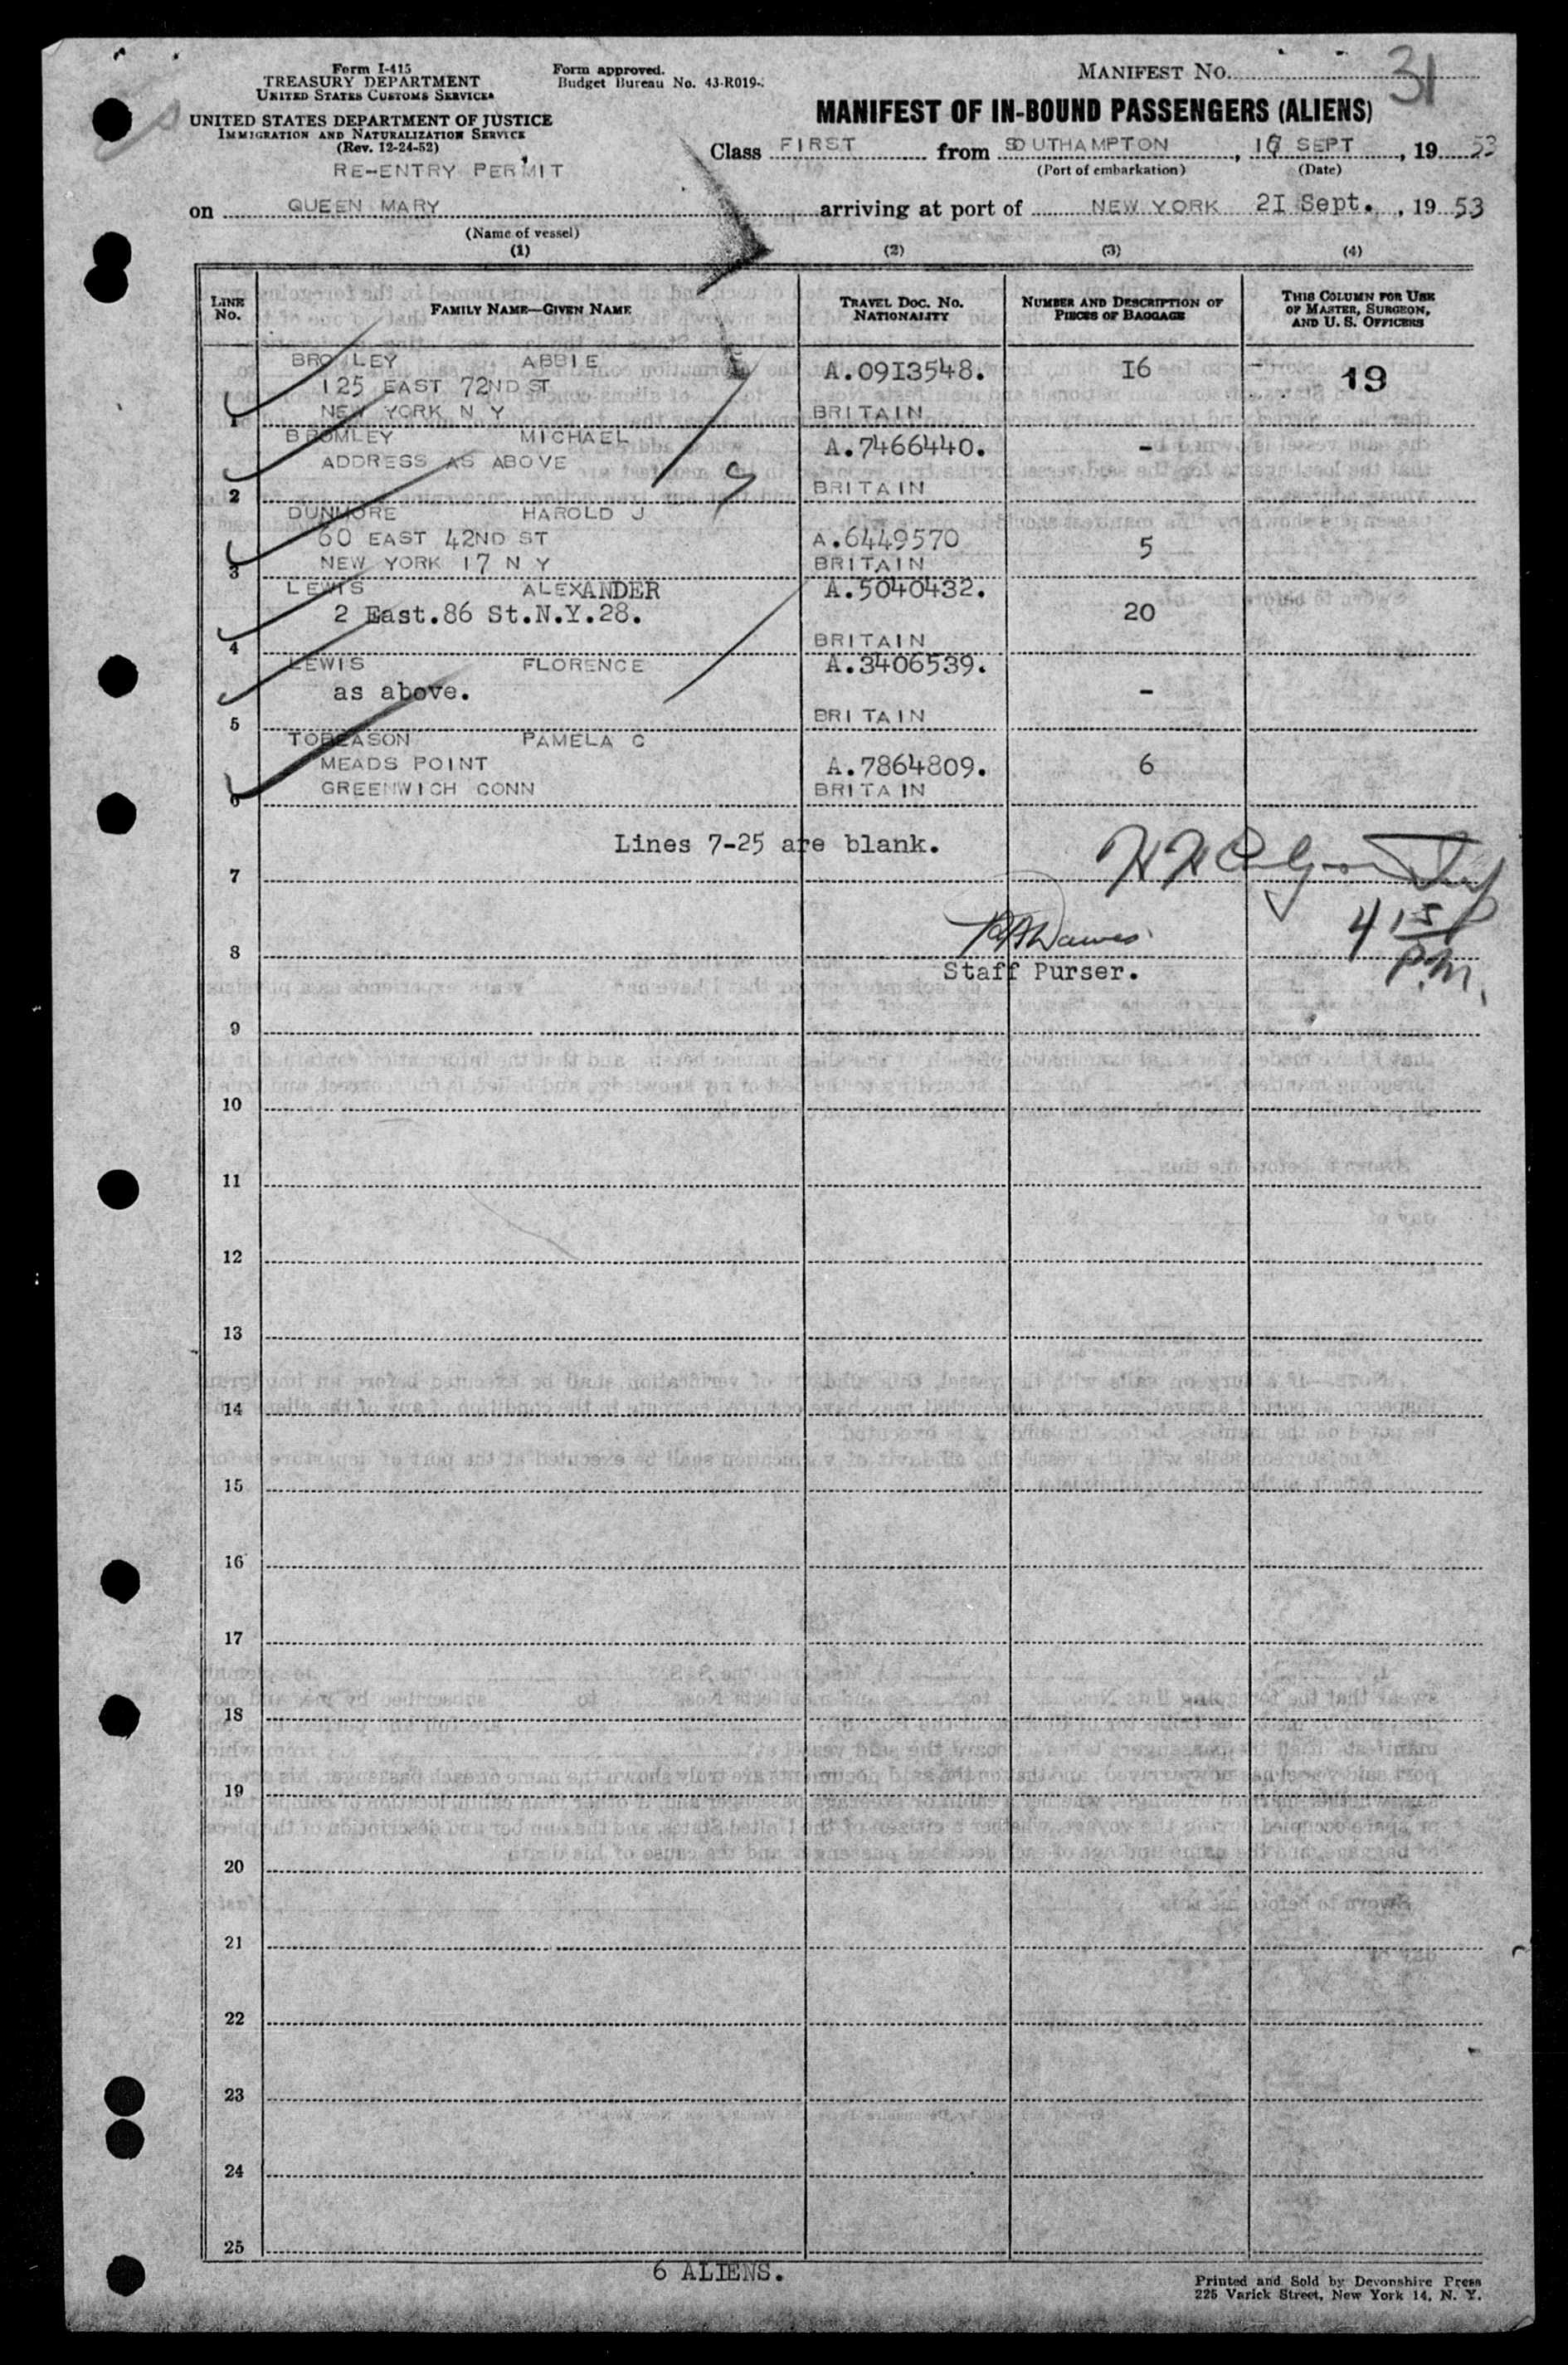 Form I-415
TREASURY DEPARTMENT
UNITED STATES CUSTOMS SERVICE
UNITED STATES DEPARTMENT OF JUSTICE
IMMIGRATION AND NATURALIZATION SERVICE
(Rev. 12-24-52)
RE-ENTRY PERMIT
Form approved.
Budget Bureau No. 43-R019-
MANIFEST NO. 31
MANIFEST OF IN-BOUND PASSENGERS (ALIENS)
Class FIRST from SOUTHAMPTON, SEPT, 19 53
(Port of embarkation) (Date)
on QUEEN MARY arriving at port of NEW YORK 21 Sept., 19 53
(Name of vessel)
(1) (2) (3) (4)
LINE No. FAMILY NAME—GIVEN NAME TRAVEL DOC. NO. NATIONALITY NUMBER AND DESCRIPTION OF PIECES OF BAGGAGE THIS COLUMN FOR USE OF MASTER, SURGEON, AND U. S. OFFICERS
BROMLEY ABBIE A.0913548. 16 19
125 EAST 72ND ST
1 NEW YORK N Y BRITAIN
BROMLEY MICHAEL A.7466440. -
ADDRESS AS ABOVE
2 BRITAIN
DUNMORE HAROLD J
60 EAST 42ND ST A.6449570 5
3 NEW YORK 17 N Y BRITAIN
LEWIS ALEXANDER A.5040432.
2 East.86 St.N.Y.28. 20
4 BRITAIN
LEWIS FLORENCE A.3406539.
as above. -
5 BRITAIN
TOBEASON PAMELA C
MEADS POINT A.7864809. 6
6 GREENWICH CONN BRITAIN
Lines 7-25 are blank.
7
4 15
8 P.M.
Staff Purser.
9
10
11
12
13
14
15
16
17
18
19
20
21
22
23
24
25
6 ALIENS.
Printed and Sold by Devonshire Press
225 Varick Street, New York 14, N. Y.